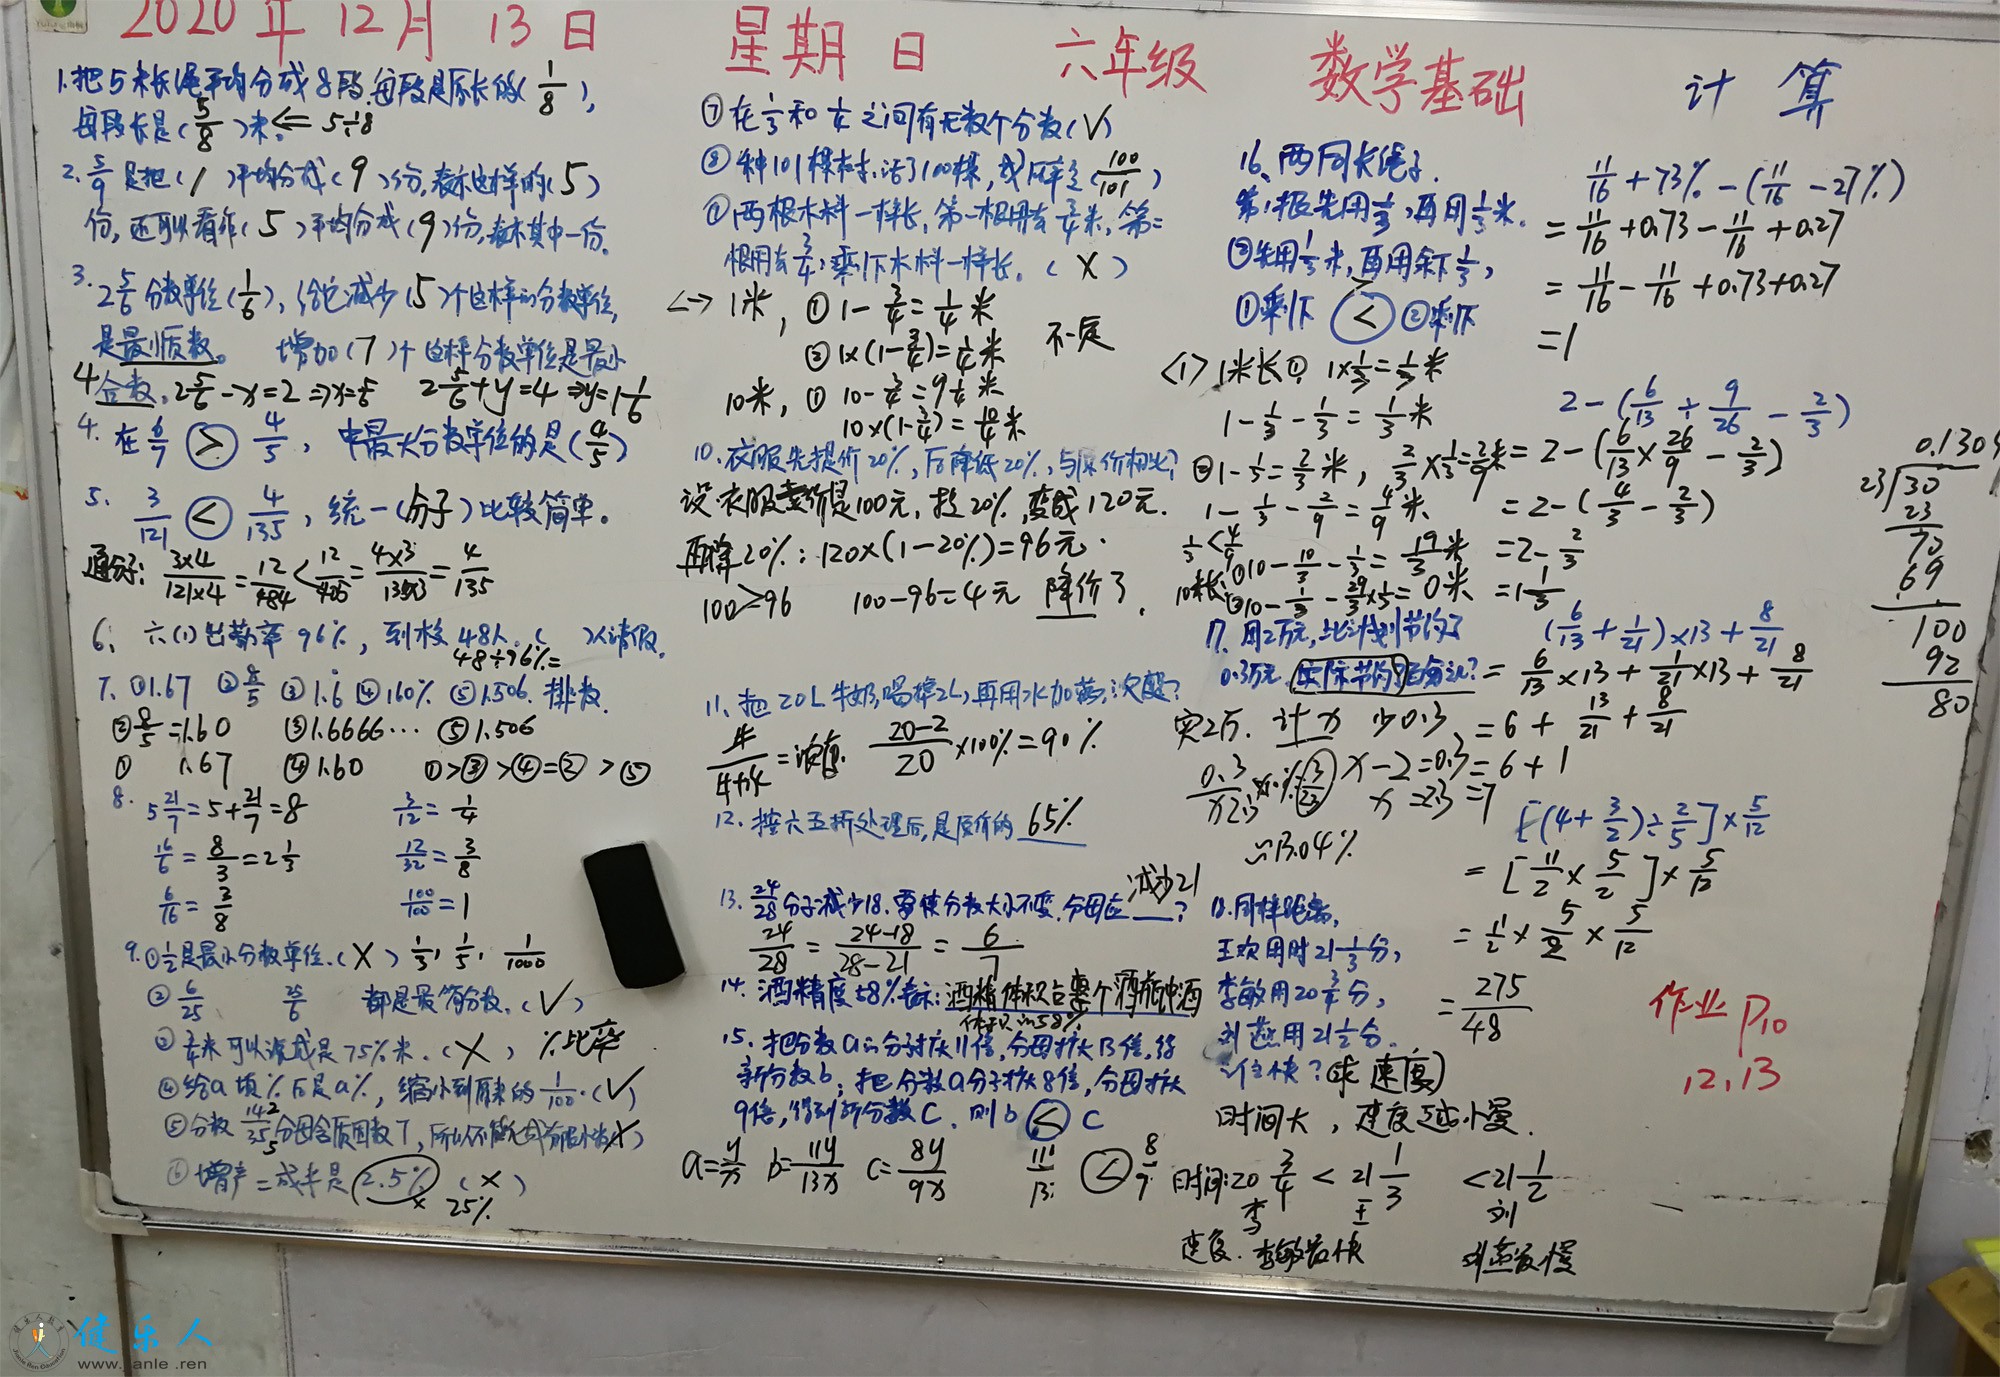 2020年12月 13日 星期日 六年级 数学基础 计算
1.把5米长绳平均分成8段,每段是原长的(1/8),
每段长是(5/8)米。⇐ 5÷8
2. 5/9 是把(1)平均分成(9)份,表示这样的(5)
份,还可以看作(5)平均分成(9)份,表示其中一份。
3. 2 5/6 分数单位(1/6),给它减少(5)个这样的分数单位,
是最小质数。 增加(7)个这样分数单位是最小
合数。2 5/6 - x = 2 ⇒ x = 5/6 2 5/6 + y = 4 ⇒ y = 1 1/6
4. 在 6/7 > 4/5 , 中最大分数单位的是(4/5)
5. 3/121 < 4/135 , 统一(分子)比较简单。
通分子: 3×4/121×4 = 12/484 < 12/405 = 4×3/135×3 = 4/135
6、六(1)出勤率96%, 到校48人。( )人请假。
48÷96%=
7. ①1.67 ②8/5 ③1.6 ④160% ⑤1.506 排数.
②8/5=1.60 ③1.6666… ⑤1.506
① 1.67 ④1.60 ①>③>④=②>⑤
8. 5 21/7 = 5 + 21/7 = 8 3/12 = 1/4
16/6 = 8/3 = 2 1/3 12/32 = 3/8
6/16 = 3/8 100/100 = 1
9. ①1/2是最小分数单位.(X) 1/3, 1/5, 1/1000
② 6/25 25/6 都是最简分数.(√)
③ 3/4米可以写成是75%米.(X) %比率
④给a填%后是a%, 缩小到原来的1/100.(√)
⑤分数 14/35 2/5 分母含质因数7, 所以不能化成有限小数(X)
⑥增产二成半是 2.5% (X)
x 25%
⑦在1/3和1/4之间有无数个分数(√)
⑧种101棵树,活了100棵, 成活率是(100/101)
⑨两根木料一样长,第一根用去3/4米,第二
根用去3/4,剩下木料一样长。(X)
1米, ① 1-3/4=1/4米
② 1×(1-3/4)=1/4米 不一定
10米, ① 10-3/4=9 1/4米
10×(1-3/4)=10/4米
10.衣服先提价20%,后降低20%,与原价相比?
设衣服卖价是100元,提20%,变成120元.
再降20%:120×(1-20%)=96元.
100>96 100-96=4元 降价了.
11、把20L牛奶,喝掉2L,再用水加满,浓度?
牛/牛+水=浓度. 20-2/20×100%=90%
12.按六五折处理后,是原价的 65%
13. 24/28 分子减少18.要使分数大小不变.分母应 减少21 ?
24/28 = 24-18/28-21 = 6/7
14. 酒精度58%表示:酒精体积占整个酒瓶中酒
体积的58%
15. 把分数a的分子扩大11倍,分母扩大13倍,得
新分数b;把分数a分子扩大8倍,分母扩大
9倍,得到新分数C,则b < C
a=y/x b=11y/13x c=8y/9x 11/13 < 8/9
16、两同长绳子.
第1根先用1/3,再用1/3米.
②先用1/3米,再用余下1/3,
①剩下 < ②剩下
<1> 1米长① 1×1/3=1/3米
1-1/3-1/3=1/3米
②1-1/3=2/3米, 2/3×1/3=2/9米
1-1/3-2/9=4/9米
1/3<4/9
10米长:①10-10/3-1/3=19/3米
②10-1/3-29/3×1/3=0米
17. 用2万元,比计划节约了
0.3万元,实际节约了百分之?
实2万. 计x 少0.3
0.3/x2.3 % 3/23 x-2=0.3
x=2.3
≈13.04%
18.同样距离,
王欢用时21 1/3分,
李敏用20 3/4分,
刘燕用21 1/2分.
谁快?(求速度)
时间大,速度越小慢.
时间:20 3/4 < 21 1/3 < 21 1/2
李 王 刘
速度. 李敏最快 刘燕最慢
11/16+73%-(11/16-27%)
=11/16+0.73-11/16+0.27
=11/16-11/16+0.73+0.27
=1
2-(6/13÷9/26-2/3)
=2-(6/13×26/9-2/3)
=2-(4/3-2/3)
=2-2/3
=1 1/3
(6/13+1/21)×13+8/21
=6/13×13+1/21×13+8/21
=6+13/21+8/21
=6+1
=7
[(4+3/2)÷2/5]×5/12
=[11/2×5/2]×5/12
=11/2×5/2×5/12
=275/48
0.1304
23 30
23
70
69
100
92
80
作业 P10
12,13
健乐人
www.jianle.ren